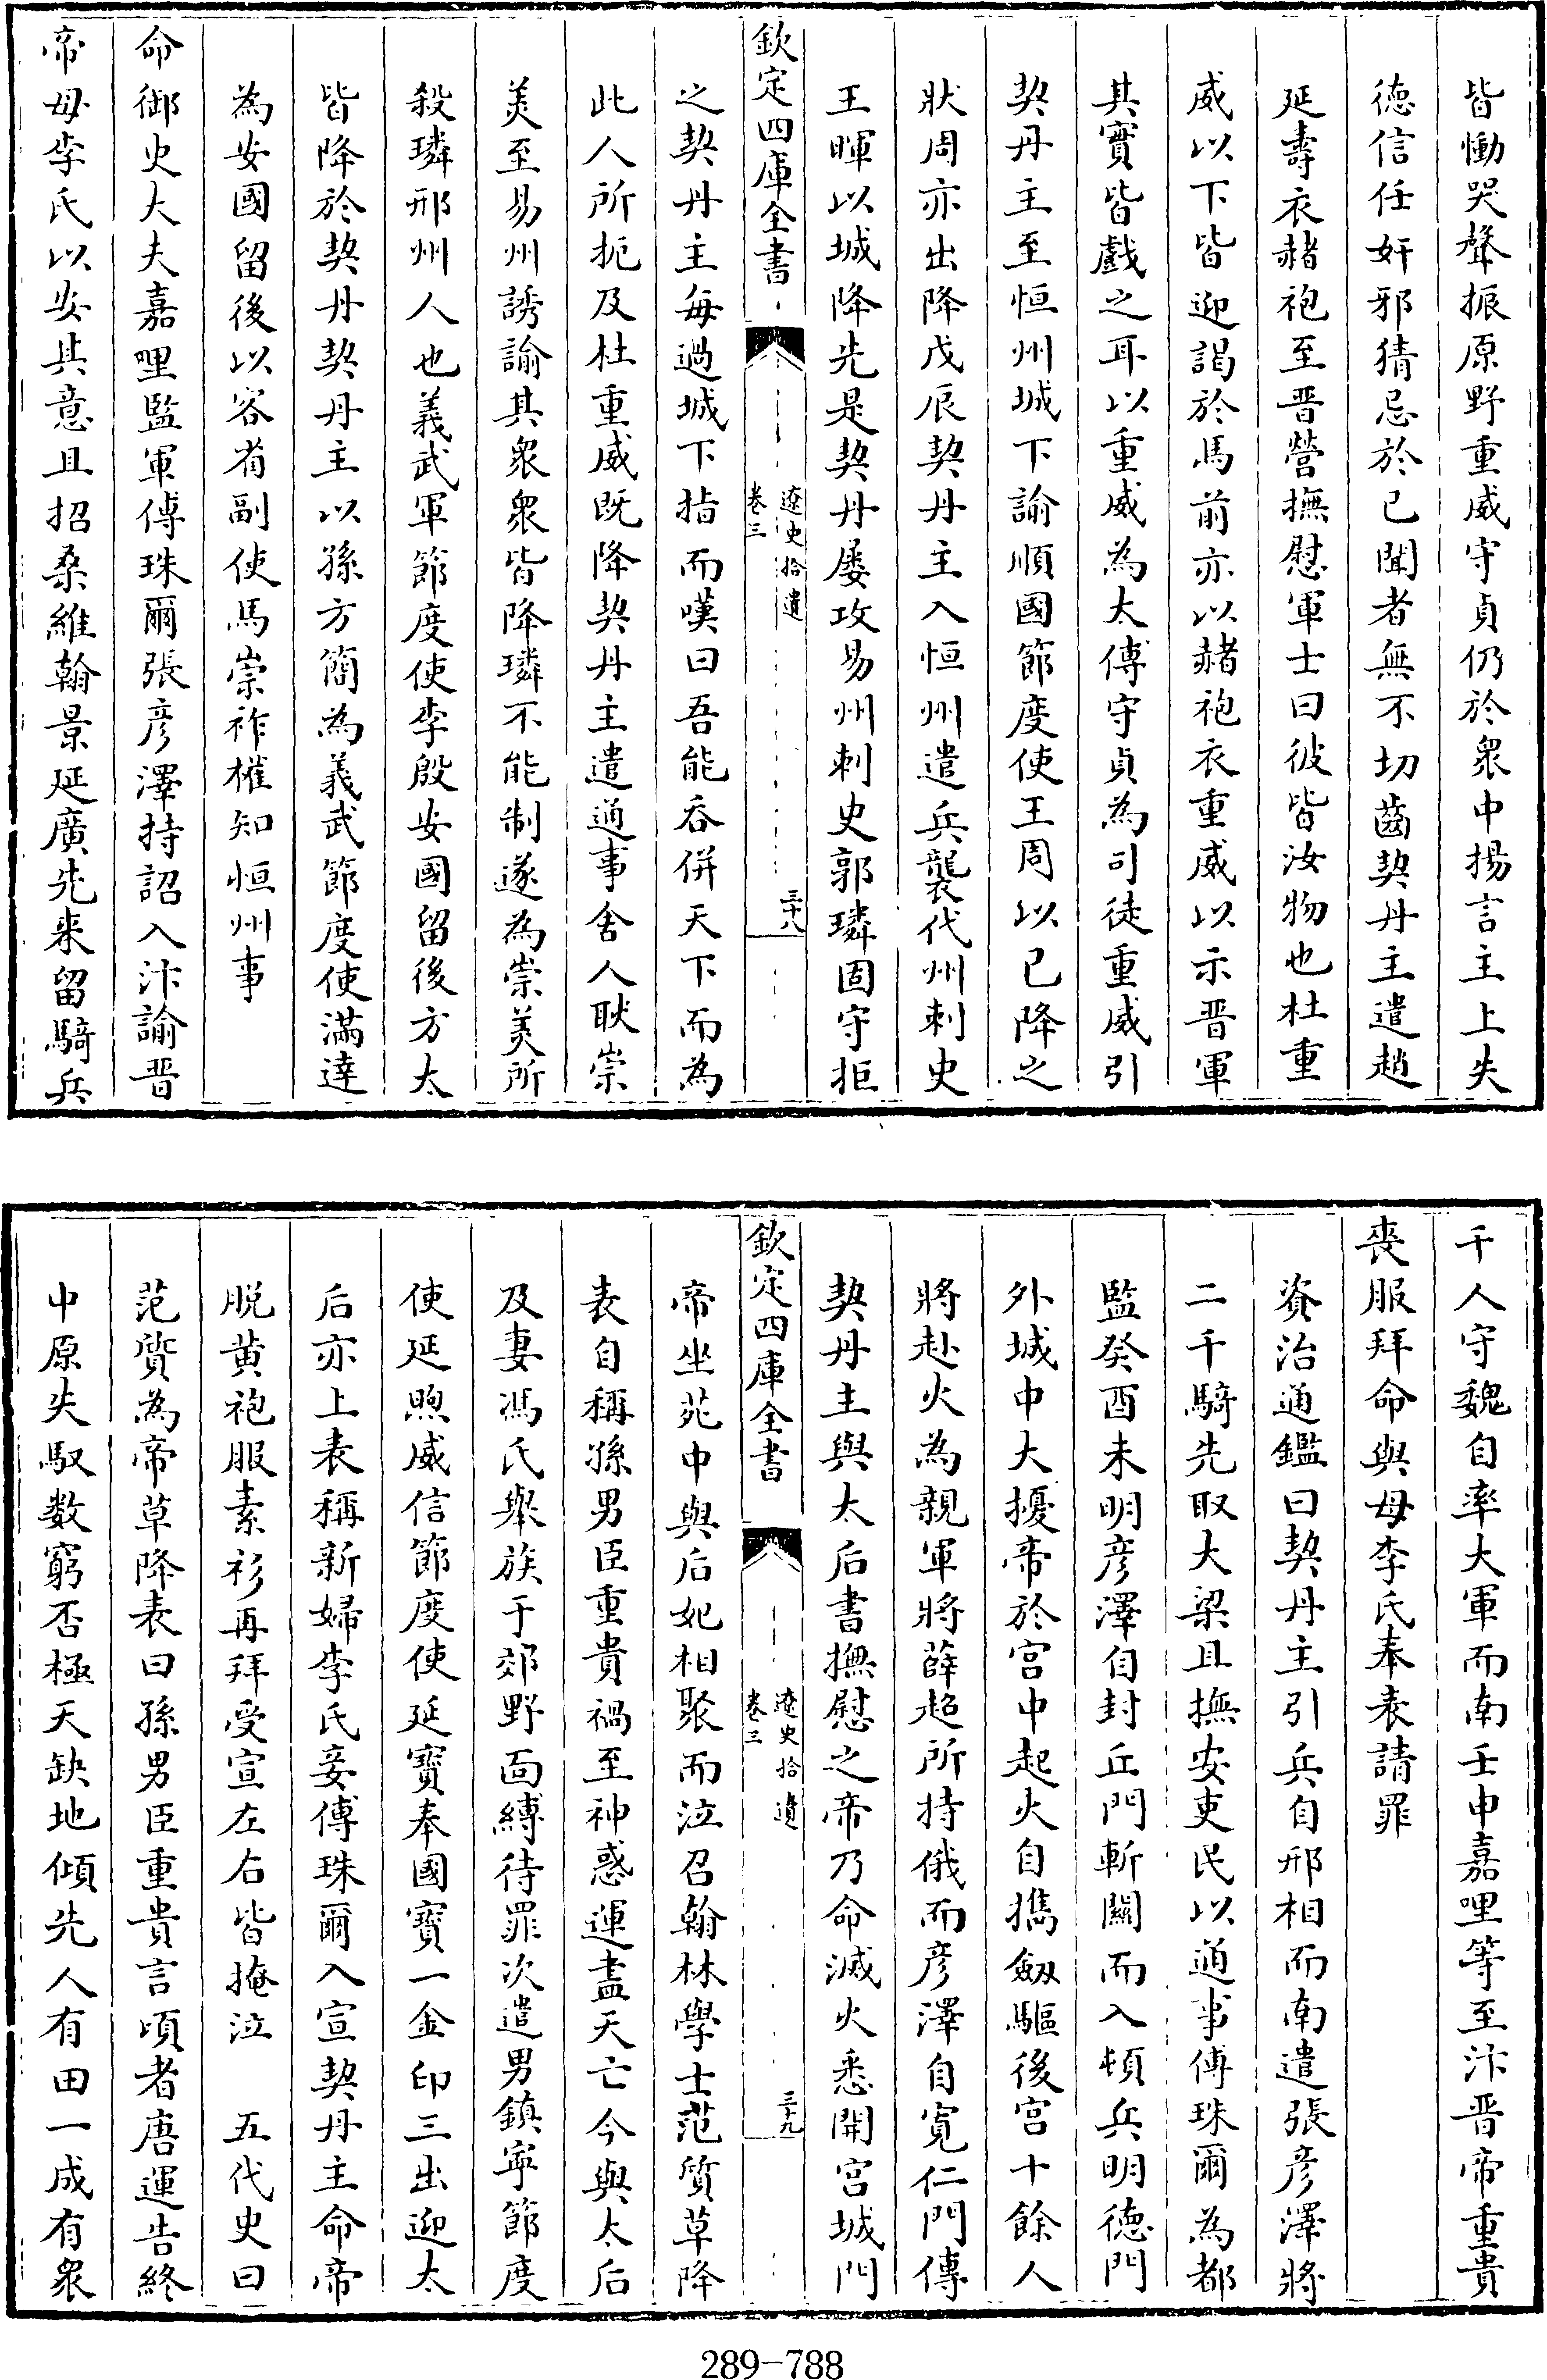 皆慟哭聲振原野重威守貞仍於衆中揚言主上失
德信任奸邪猜忌於已聞者無不切齒契丹主遣趙
延壽衣赭袍至晋營撫慰軍士曰彼皆汝物也杜重
威以下皆迎謁於馬前亦以赭袍衣重威以示晋軍
其實皆戲之耳以重威為太傅守貞為司徒重威引
契丹主至恒州城下諭順國節度使王周以已降之
狀周亦出降戊辰契丹主入恒州遣兵襲代州刺史
王暉以城降先是契丹屡攻易州刺史郭璘固守拒
欽定四庫全書
遼史拾遺
卷三
三十八
之契丹主每過城下指而嘆曰吾能吞併天下而為
此人所扼及杜重威既降契丹主遣通事舍人耿崇
美至易州誘諭其衆衆皆降璘不能制遂為崇美所
殺璘邢州人也義武軍節度使李殷安國留後方太
皆降於契丹契丹主以孫方簡為義武節度使滿達
為安國留後以客省副使馬崇祚權知恒州事
命御史大夫嘉哩監軍傅珠爾張彦澤持詔入汴諭晋
帝母李氏以安其意且招桑維翰景延廣先来留騎兵
千人守魏自率大軍而南壬申嘉哩等至汴晋帝重貴
喪服拜命與母李氏奉表請罪
資治通鑑曰契丹主引兵自邢相而南遣張彦澤將
二千騎先取大梁且撫安吏民以通事傅珠爾為都
監癸酉未明彦澤自封丘門斬關而入頓兵明德門
外城中大擾帝於宫中起火自擕劔驅後宫十餘人
將赴火為親軍將薛超所持俄而彦澤自寛仁門傳
契丹主與太后書撫慰之帝乃命滅火悉開宫城門
欽定四庫全書
遼史拾遺
卷三
三十九
帝坐苑中與后妃相聚而泣召翰林學士范質草降
表自稱孫男臣重貴禍至神惑運盡天亡今與太后
及妻馮氏舉族于郊野面縛待罪次遣男鎮寜節度
使延煦威信節度使延寶奉國寶一金印三出迎太
后亦上表稱新婦李氏妾傅珠爾入宣契丹主命帝
脱黄袍服素衫再拜受宣左右皆掩泣　五代史曰
范質為帝草降表曰孫男臣重貴言頃者唐運告終
中原失馭数窮否極天缺地傾先人有田一成有衆
289-788